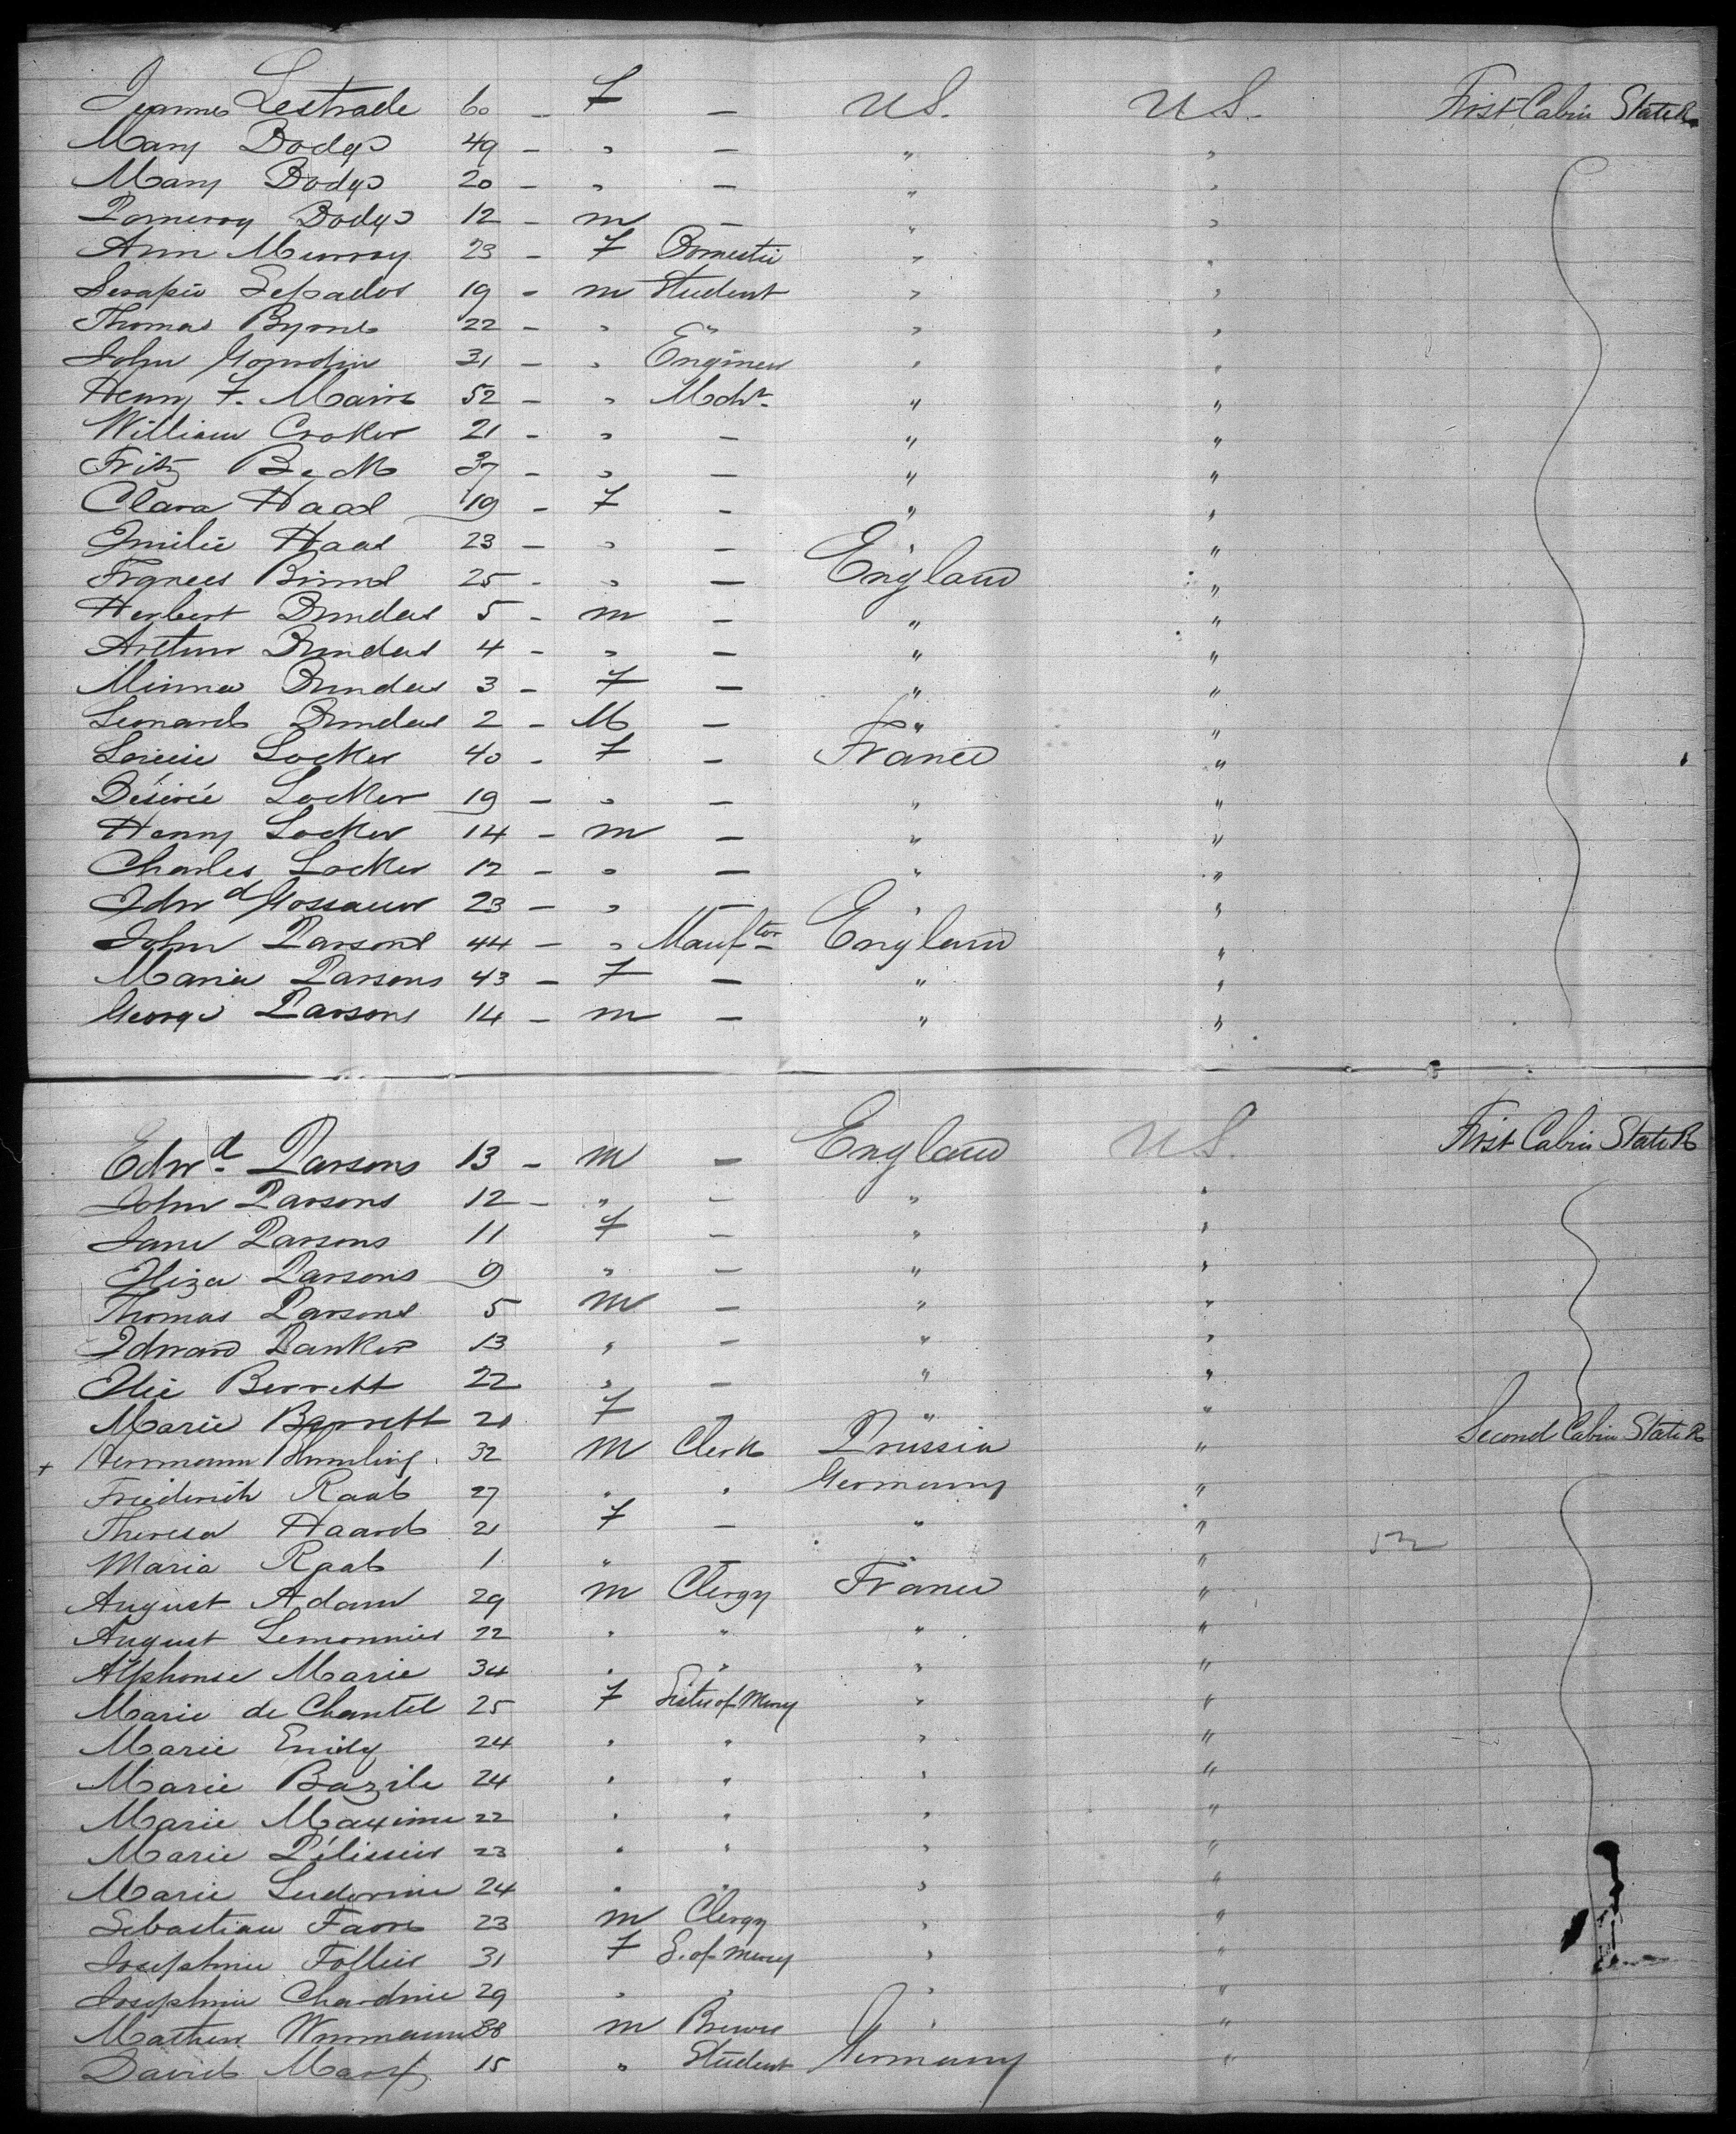 Jeanne Lestrade 60 - F - U.S. U.S. First Cabin State R.
Mary Dodge 49 - " - " "
Mary Dodge 20 - " - " "
Pomeroy Dodge 12 - m - " "
Ann Murray 23 - F Domestic " "
Serapio 19 - m Student " "
Thomas Byrne 22 - " " " "
John Gourdin 31 - " Engineer " "
Henry F. 52 - " Mcht. " "
William Croker 21 - " - " "
Fritz Beck 37 - " - " "
Clara Haas 19 - F - " "
Emilie Haas 23 - " - " "
Frances 25 - " - England "
Herbert 5 - m - " "
Arthur 4 - " - " "
Minna 3 - F - " "
Leonard 2 - M - " "
Louise Locker 40 - F - France "
Désirée Locker 19 - " - " "
Henry Locker 14 - m - " "
Charles Locker 12 - " - " "
Edwd 23 - " - " "
John Parsons 44 - " Manftor England "
Maria Parsons 43 - F - " "
George Parsons 14 - m - " "
Edwd Parsons 13 - m - England U.S. First Cabin State R
John Parsons 12 - " - " "
Jane Parsons 11 F - " "
Eliza Parsons 9 " - " "
Thomas Parsons 5 m - " "
Edward 13 " - " "
Elie Berrett 22 " - " "
Marie Berrett 21 F - " "
+ Herrmann 32 m Clerk Prussia " Second Cabin State R
Friederich Raab 27 " " Germany "
Theresa 21 F - " "
Maria Raab 1 " - " "
August Adam 29 m Clergy France "
August Lemonnier 22 " " " "
Alphonse Marie 34 " " " "
Marie de Chantel 25 F Sister of Mercy " "
Marie Emily 24 " " " "
Marie Bazile 24 " " " "
Marie Maxime 22 " " " "
Marie Pélissier 23 " " " "
Marie Ludovine 24 " " " "
Sebastian Favre 23 m Clergy " "
Josephine 31 F S. of Mercy " "
Josephine Chardine 29 " " " "
Mathew 38 m Brewer " "
David Marx 15 " Student Germany "